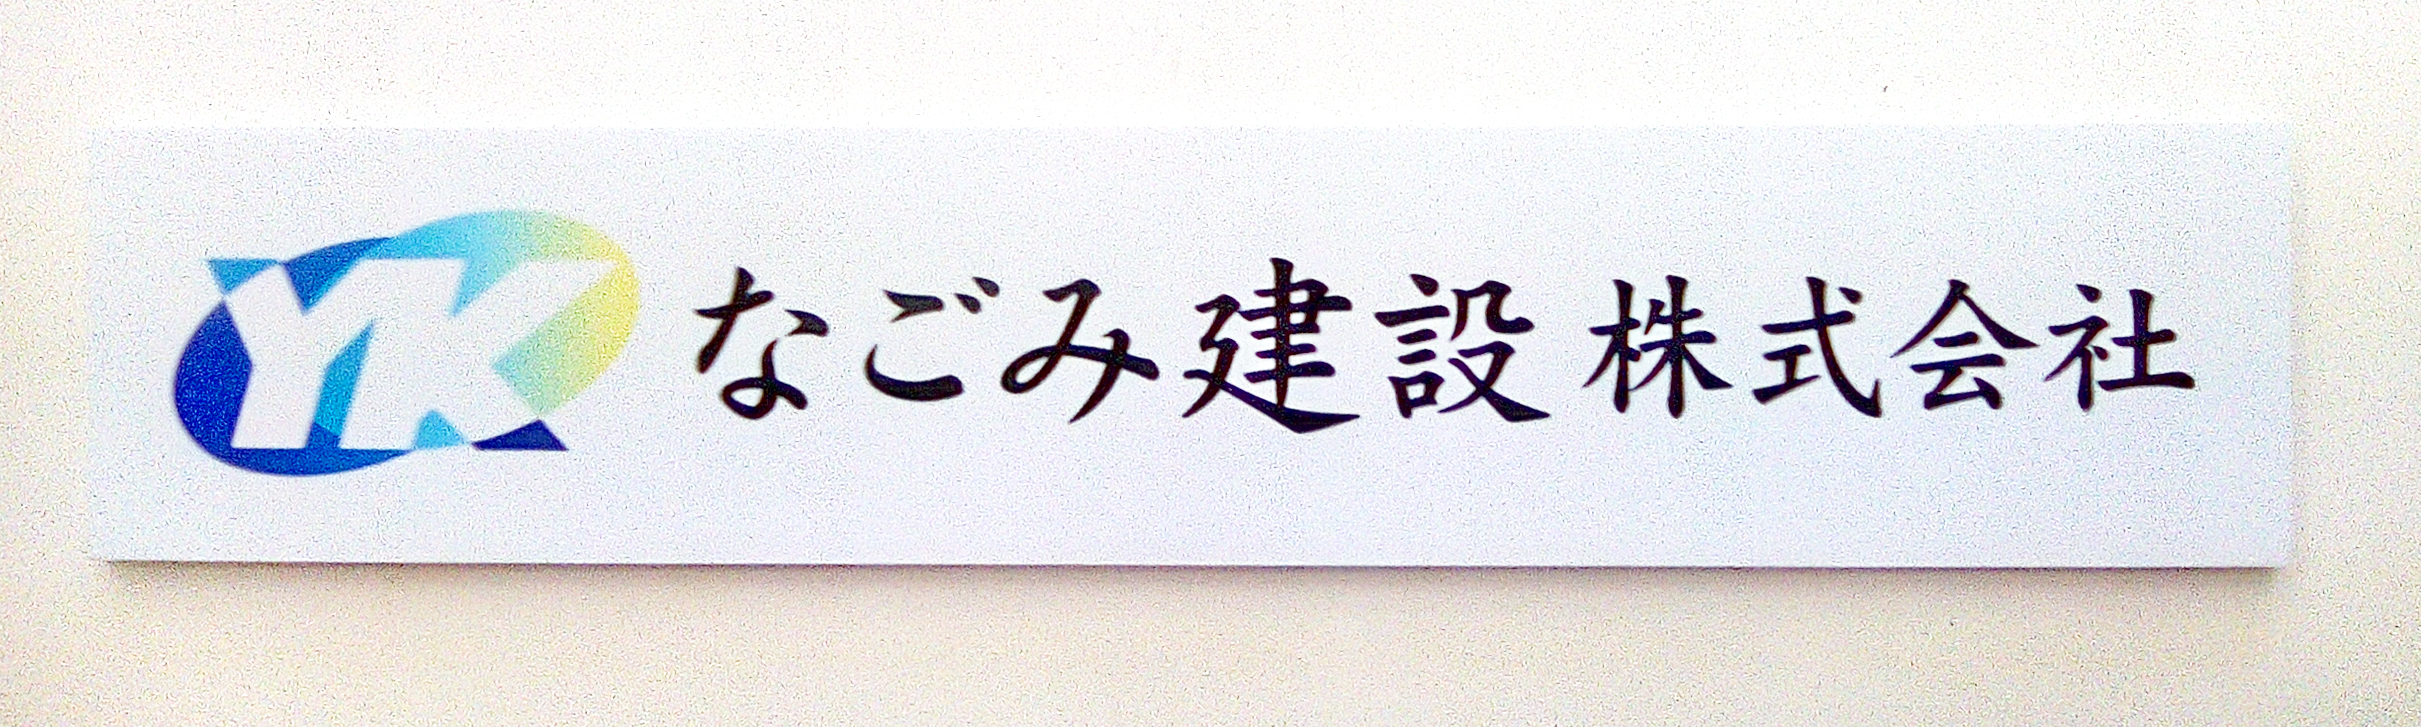 YK なごみ建設株式会社